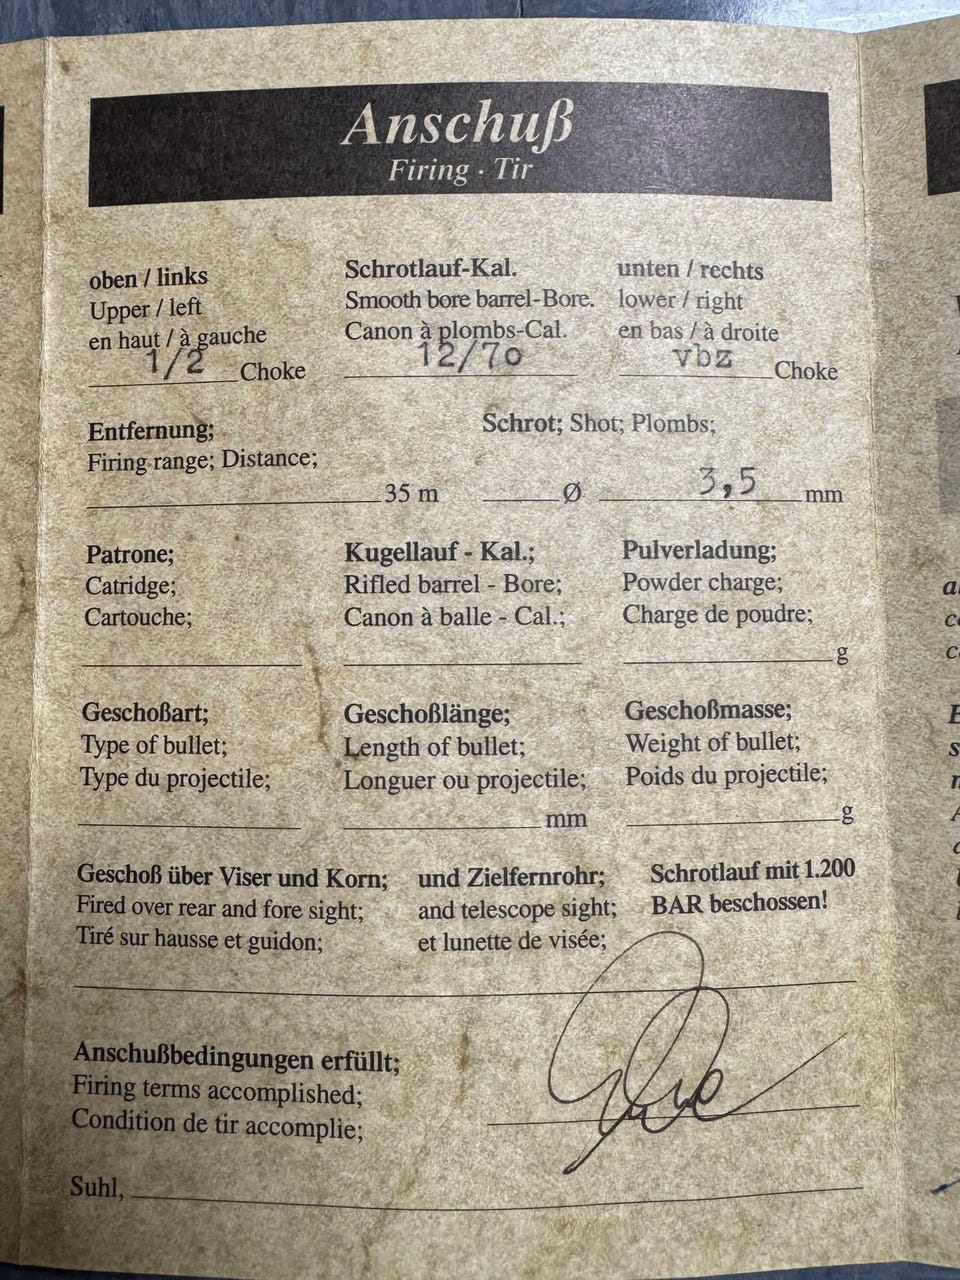 Anschuß
Firing · Tir
oben / links
Upper / left
en haut / à gauche
1/2 Choke
Schrotlauf-Kal.
Smooth bore barrel-Bore.
Canon à plombs-Cal.
12/70
unten / rechts
lower / right
en bas / à droite
vbz Choke
Entfernung;
Firing range; Distance;
35 m
Schrot; Shot; Plombs;
Ø 3,5 mm
Patrone;
Catridge;
Cartouche;
Kugellauf - Kal.;
Rifled barrel - Bore;
Canon à balle - Cal.;
Pulverladung;
Powder charge;
Charge de poudre;
g
Geschoßart;
Type of bullet;
Type du projectile;
Geschoßlänge;
Length of bullet;
Longuer ou projectile;
mm
Geschoßmasse;
Weight of bullet;
Poids du projectile;
g
Geschoß über Viser und Korn;
Fired over rear and fore sight;
Tiré sur hausse et guidon;
und Zielfernrohr;
and telescope sight;
et lunette de visée;
Schrotlauf mit 1.200
BAR beschossen!
Anschußbedingungen erfüllt;
Firing terms accomplished;
Condition de tir accomplie;
Suhl,